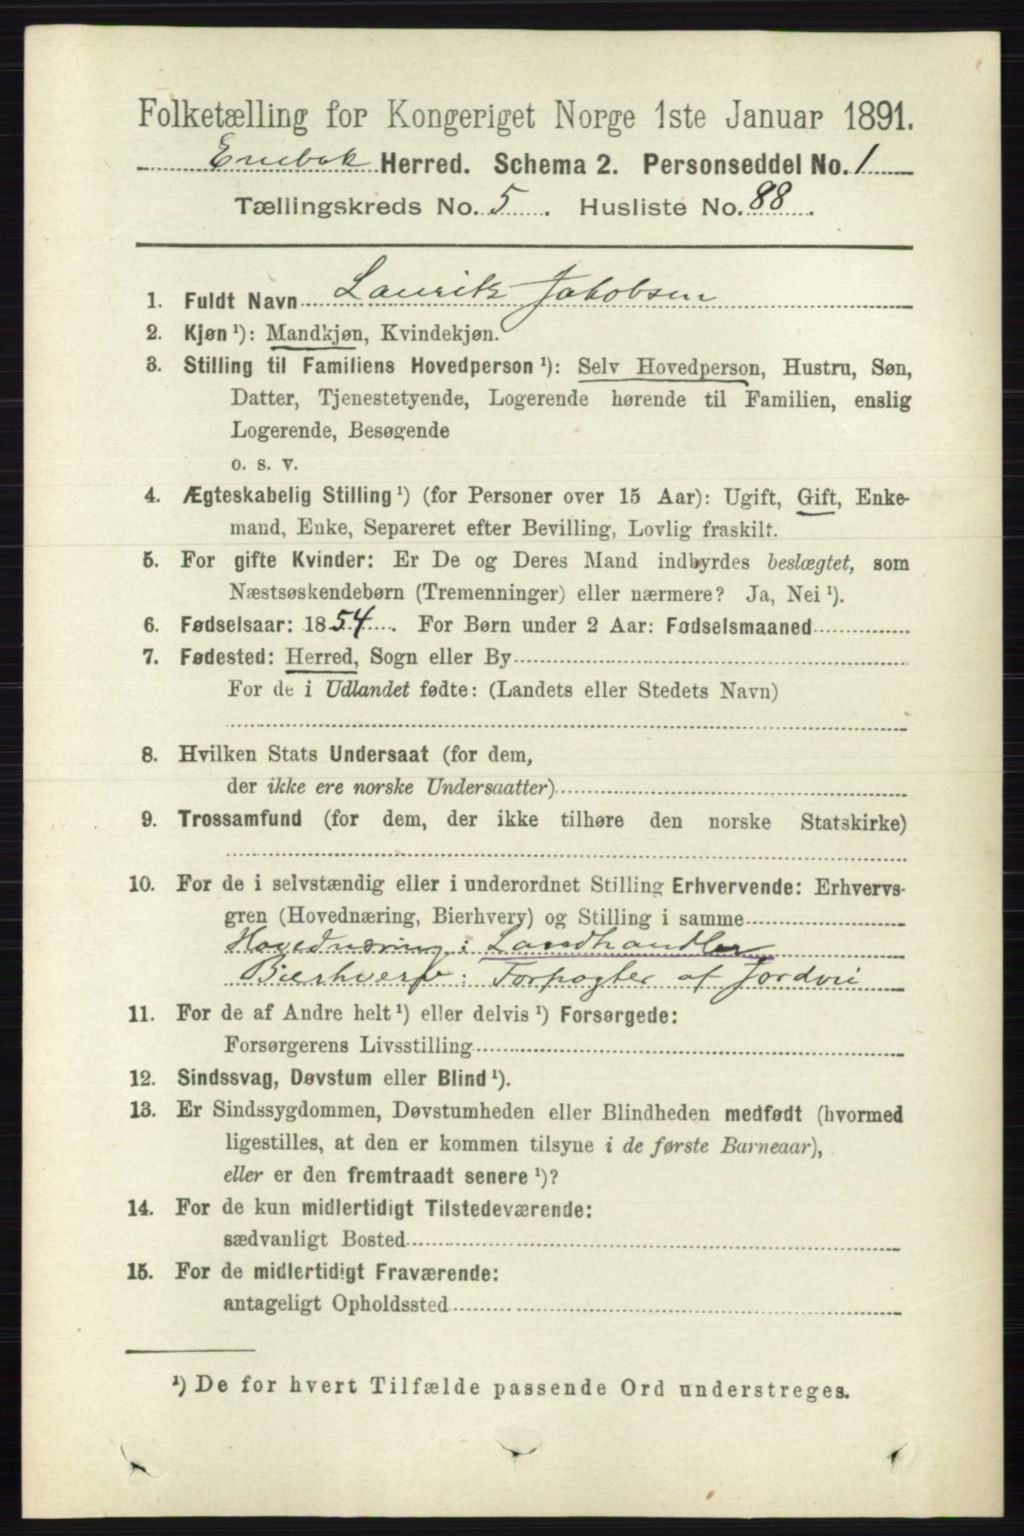 Folketælling for Kongeriget Norge 1ste Januar 1891.
Enebak Herred. Schema 2. Personseddel No. 1
Tællingskreds No. 5. Husliste No. 88.
1. Fuldt Navn Laurits Jakobsen
2. Kjøn ¹): Mandkjøn, Kvindekjøn.
3. Stilling til Familiens Hovedperson ¹): Selv Hovedperson, Hustru, Søn,
Datter, Tjenestetyende, Logerende hørende til Familien, enslig
Logerende, Besøgende
o. s. v.
4. Ægteskabelig Stilling ¹) (for Personer over 15 Aar): Ugift, Gift, Enke-
mand, Enke, Separeret efter Bevilling, Lovlig fraskilt.
5. For gifte Kvinder: Er De og Deres Mand indbyrdes beslægtet, som
Næstsøskendebørn (Tremenninger) eller nærmere? Ja, Nei ¹).
6. Fødselsaar: 1854. For Børn under 2 Aar: Fødselsmaaned
7. Fødested: Herred, Sogn eller By
For de i Udlandet fødte: (Landets eller Stedets Navn)
8. Hvilken Stats Undersaat (for dem,
der ikke ere norske Undersaatter)
9. Trossamfund (for dem, der ikke tilhøre den norske Statskirke)
10. For de i selvstændig eller i underordnet Stilling Erhvervende: Erhvervs-
gren (Hovednæring, Bierhverv) og Stilling i samme
Hovednæring: Landhandler
Bierhverv: Forpagter af Jordvei
11. For de af Andre helt ¹) eller delvis ¹) Forsørgede:
Forsørgerens Livsstilling
12. Sindssvag, Døvstum eller Blind ¹).
13. Er Sindssygdommen, Døvstumheden eller Blindheden medfødt (hvormed
ligestilles, at den er kommen tilsyne i de første Barneaar),
eller er den fremtraadt senere ¹)?
14. For de kun midlertidigt Tilstedeværende:
sædvanligt Bosted
15. For de midlertidigt Fraværende:
antageligt Opholdssted
¹) De for hvert Tilfælde passende Ord understreges.